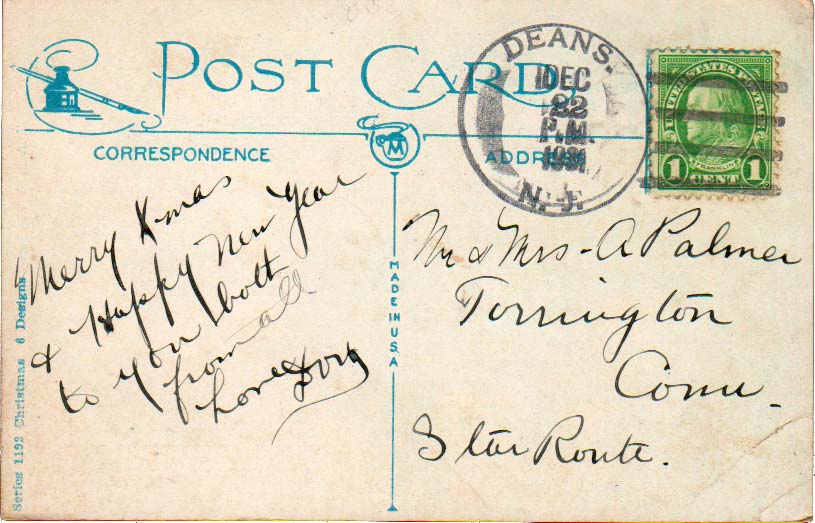 POST CARD
CORRESPONDENCE
ADDRESS
M
DEANS.
DEC
22
P.M.
1931
N.J.
UNITED STATES POSTAGE
FRANKLIN
1 CENT 1
Merry X-mas
& Happy New Year
to you both
from all
Love
Mr & Mrs - A Palmer
Torrington
Conn -
Star Route.
MADE IN U.S.A
Series 1192 Christmas 6 Designs